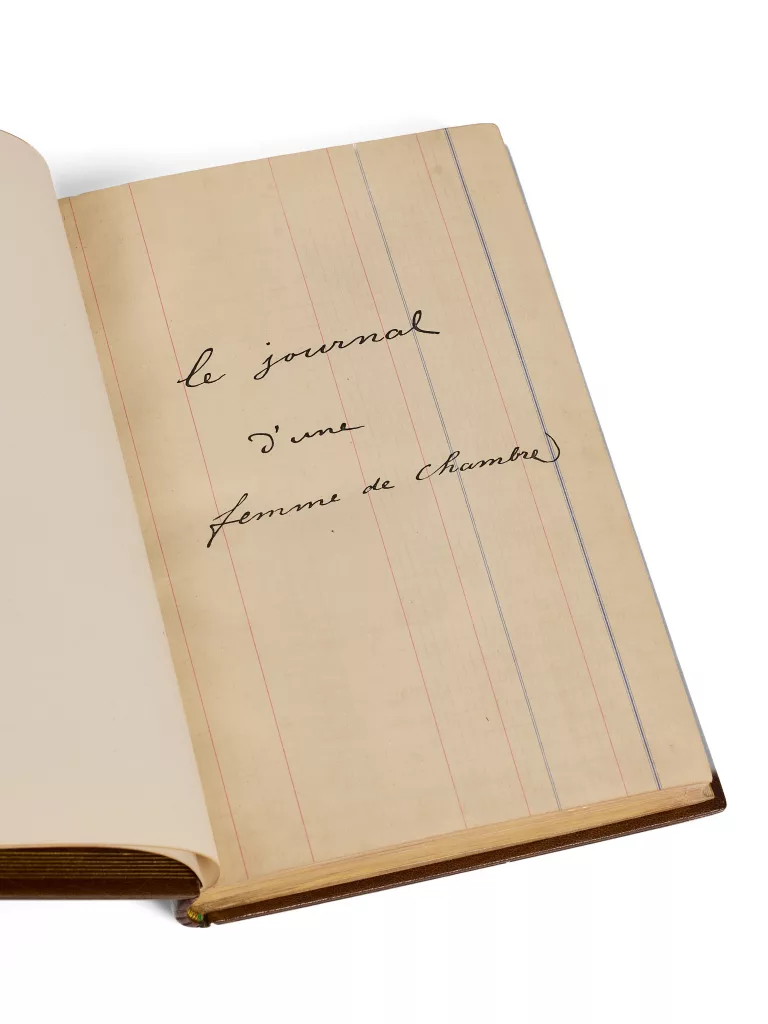 le journal
d'une
femme de chambre